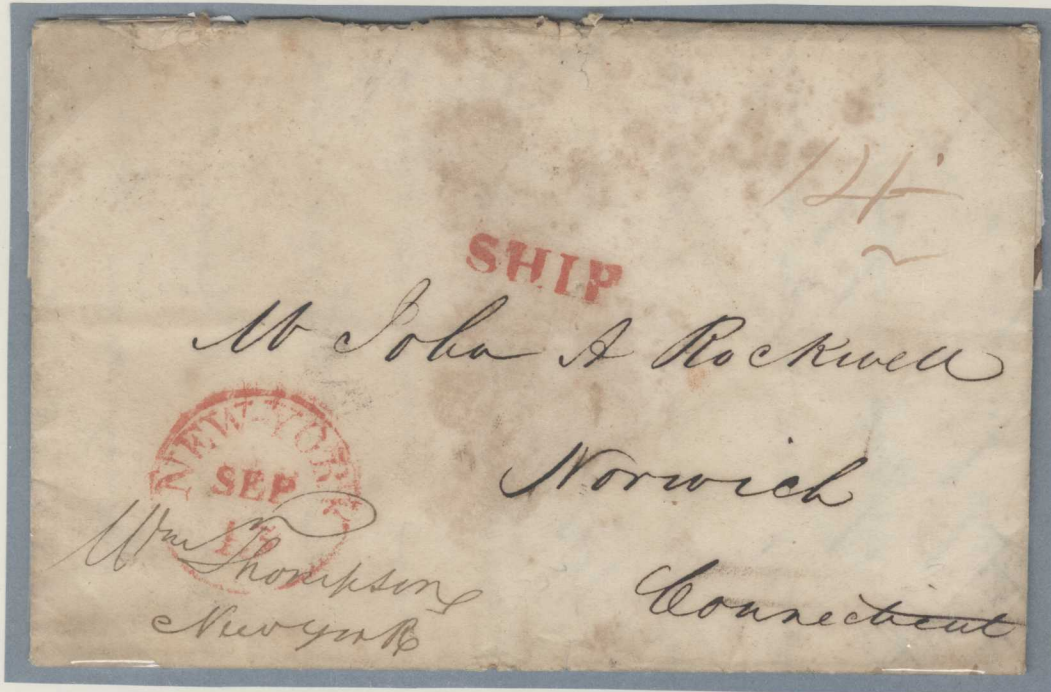 14
SHIP
Mr John A Rockwell
Norwich
Connecticut
NEW-YORK
SEP
Wm Thompson
New York